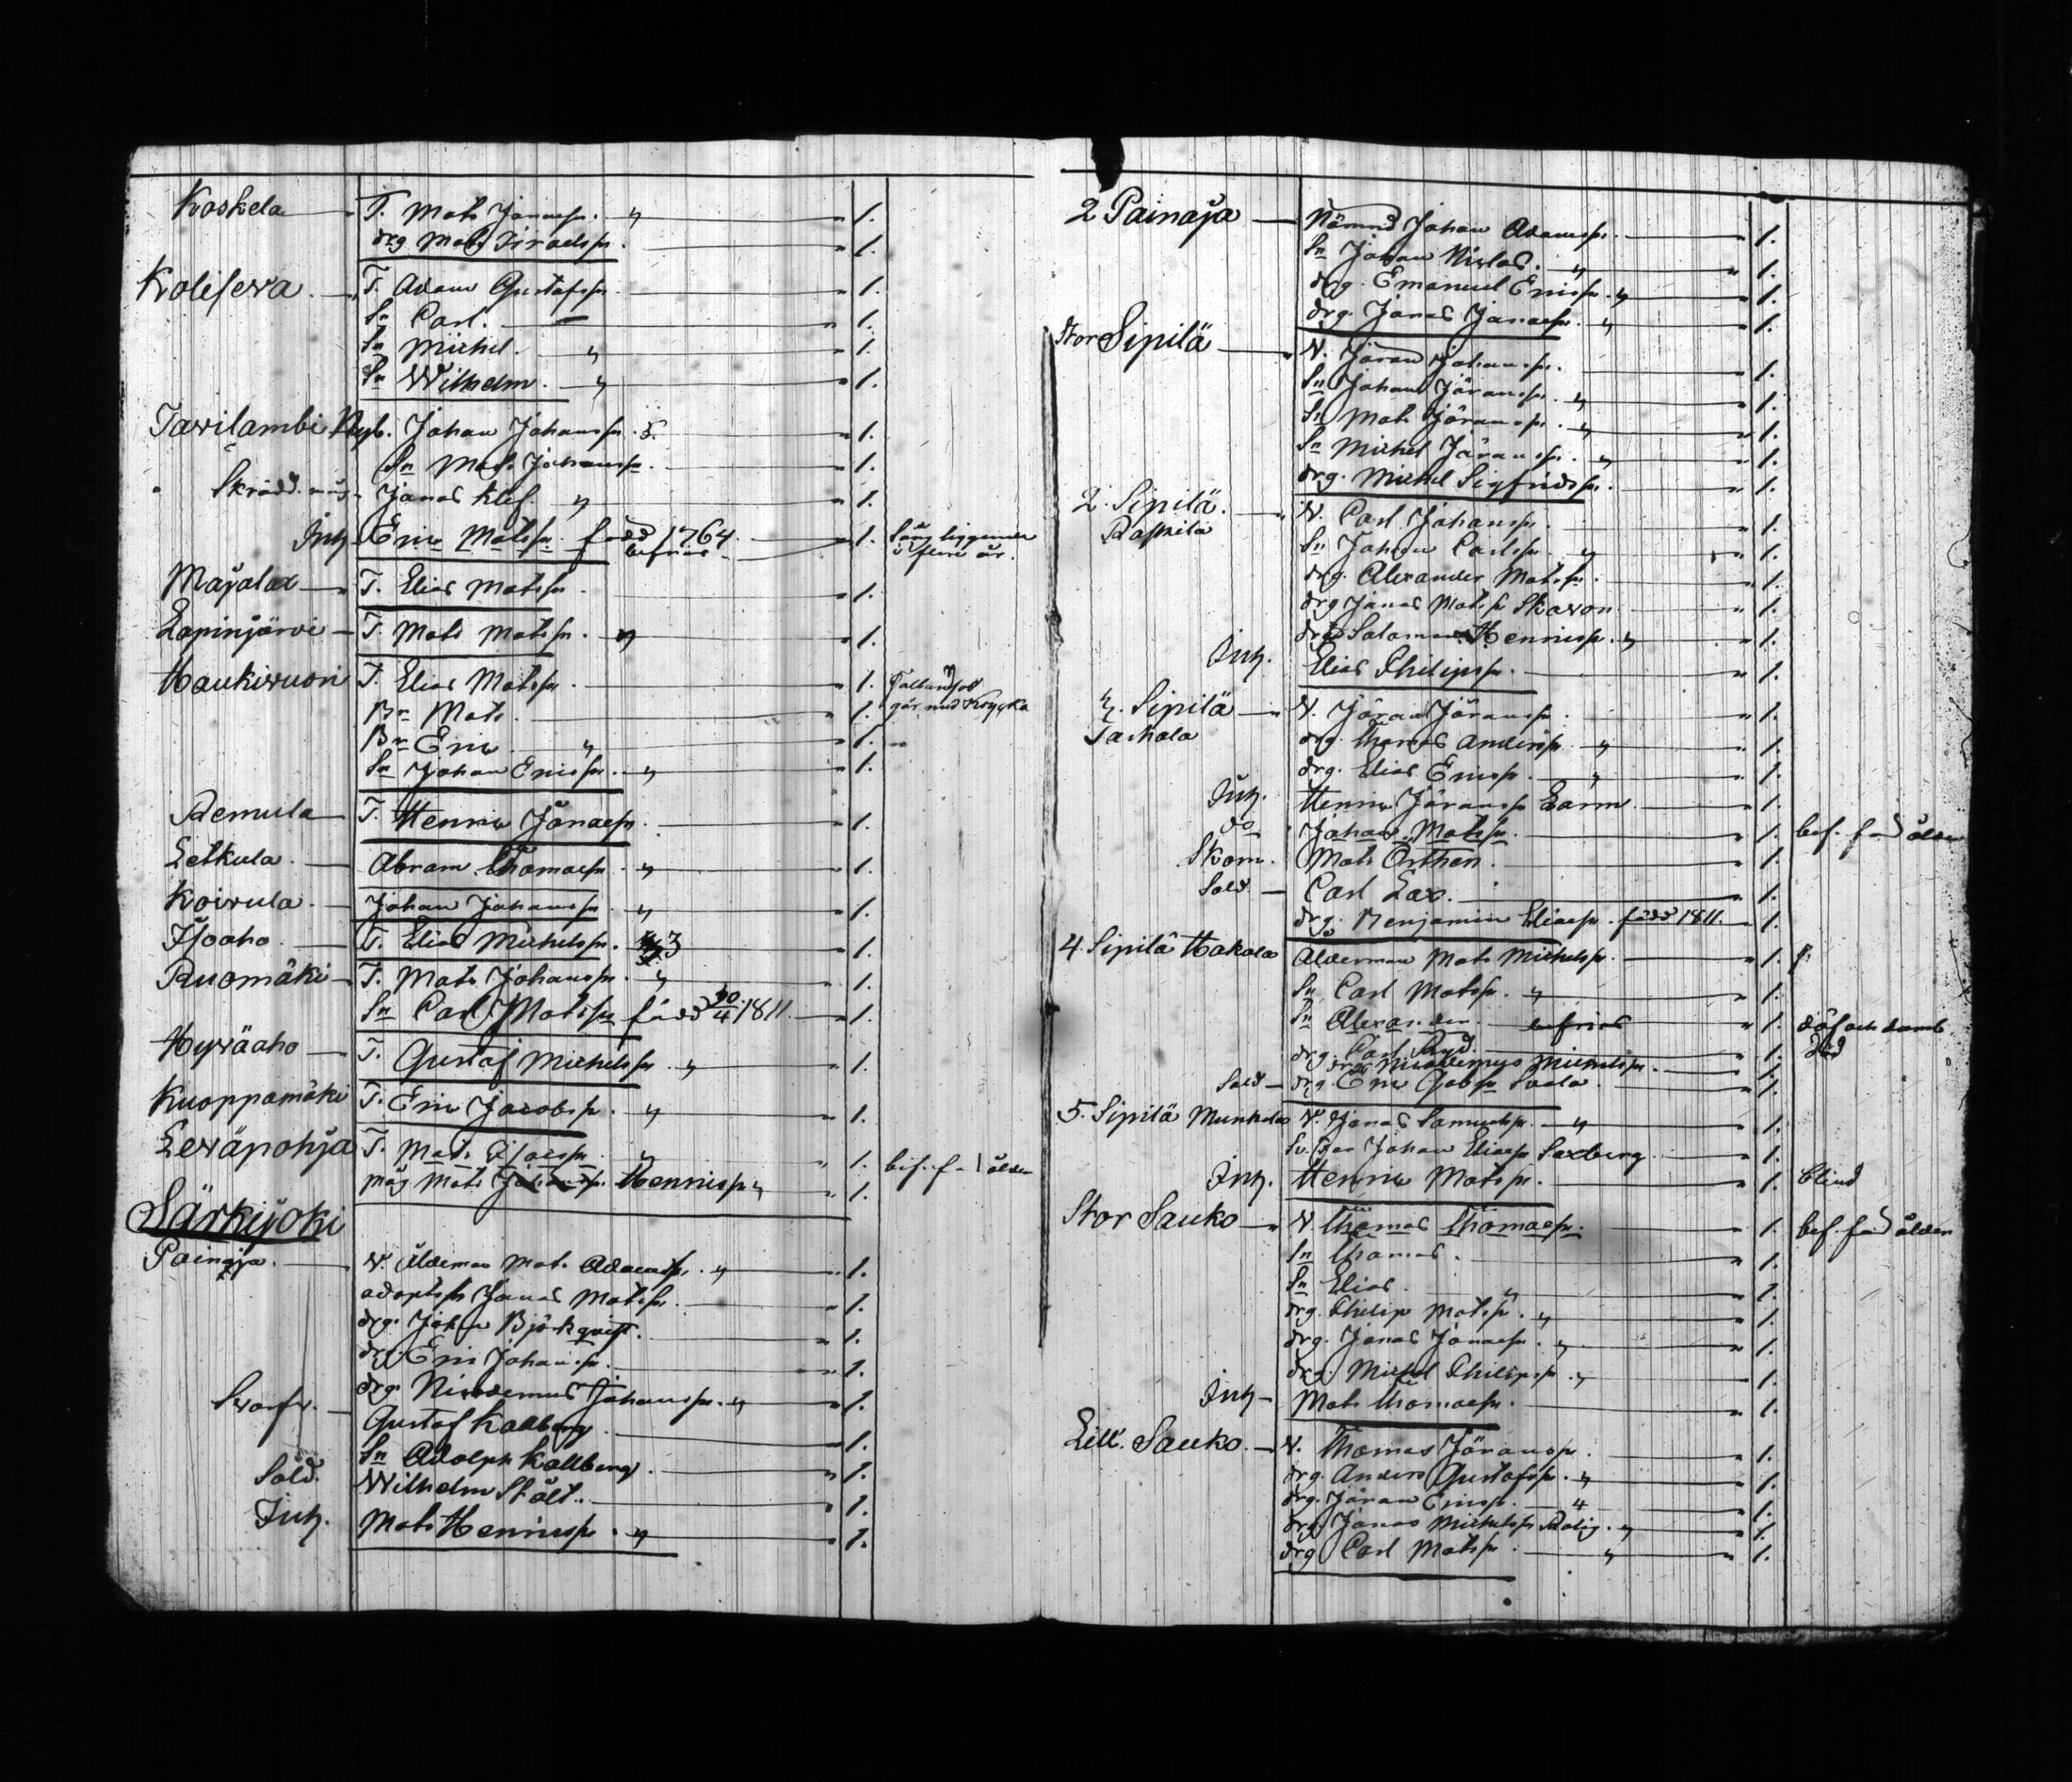 Koskela T. Mats Jonaesn. " " 1.
drg Mats Israelsn. " 1.
Koliseva T. Adam Gustafsn. " 1.
Sn Carl. — " 1.
Sn Michel. " " 1.
Sn Wilhelm. " " 1.
Tavilambi Nyb. Johan Johansn. 5. " 1.
Sn Mats Johansn. " 1.
Skrädd. Jonas Klef. " " 1.
Inh. Eric Matssn. född 1764. befrias 1. Säng liggende i flere år.
Majalax T. Elias Matssn. " 1.
Lapinjärvi T. Mats Matssn. " " 1.
Haukivuori T. Elias Matssn. 1. går med Krycka
Br Mats. " 1.
Br Eric " " 1.
Sn Johan Ericssn. " " 1.
Remula T. Henric Jonaesn. " 1.
Letkula. Abram Thomaesn. " " 1.
Koivula. Johan Johanssn. " " 1.
Isoaho. T. Elias Michelssn. 3 " 1.
Ruomäki T. Mats Johanssn. " " 1.
Sn Carl Matssn född 30/4 1811. 1.
Hyväaho T. Gustaf Michelssn. " " 1.
Kuoppamäki T. Eric Jacobssn. " " 1.
Leväpohja T. Mats " " 1. bef. f. ålder
måg Mats Henricssn " " 1.
Särkijoki
Painaja. N. Ålderman Mats Adamssn. " " 1.
adoptsn Jonas Matssn. " 1.
drg. Johan Björkqvist. " 1.
drg. Eric Johanssn. " 1.
drg. Nicodemus Johanssn. " " 1.
Svarfv. Gustaf Kallberg " 1.
Sn Adolph Kallberg. " 1.
Sold. Wilhelm Stålt. " 1.
Inh. Mats Henricssn. " " 1.
2 Painaja Nämnd Johan Adamssn. " 1.
Sn Johan Niclas. " " 1.
drg. Emanuel Ericssn. " " 1.
drg. Jonas Jonaesn. " " 1.
Stor Sipilä N. Jöran Johanssn. " 1.
Sn Johan Jöranssn. " " 1.
Sn Mats Jöranssn. " " 1.
Sn Michel Jöranssn. " " 1.
drg. Michel Sigfridssn. " 1.
2. Sipilä. N. Carl Johanssn. " 1.
Raskila Sn Johan Carlssn. " " 1.
drg. Alexander Matssn. " 1.
drg Jonas Matssn Skaxon " 1.
drg Salomon Henricssn. " " 1.
Inh. Elias Philipssn. " 1.
3. Sipilä N. Jöran Jöranssn. " 1.
Taskala drg. Thomas Anderssn. " " 1.
drg. Elias Ericssn. " " 1.
Inh. Henric Jöranssn Larm " 1.
do Johan Matssn. " 1. bef. för ålder
Skom. Mats Örthen. " 1.
Sold. Carl Lax. " 1.
drg. Benjamin Eliaesn. född 1811. " 1.
4. Sipilä Hakala Ålderman Mats Michelssn. " 1.
Sn Carl Matssn. " " 1.
Sn Alexander. befrias " 1. döf och dumb.
drg. Carl " 1. död
drg. Nicodemus Michelssn. " 1.
Sold. drg. Eric Svala. " 1.
5. Sipilä Munkala N. Jonas Samuelssn. " " 1.
Johan Eliaesn Saxberg. " 1.
Inh. Henric Matssn. " 1. blind
Stor Sauko N. Thomas Thomaesn. " 1. bef. för ålder
Sn Thomas. " 1.
Sn Elias. " " 1.
drg. Philip Matssn. " " 1.
drg. Jonas Jonaesn. " " 1.
drg. Michel Philipssn. " " 1.
Inh. Mats Thomaesn. " 1.
Lill. Sauko. N. Thomas Jöranssn. " 1.
drg. Anders Gustafssn. " " 1.
drg. Jöran Ericssn. " " 1.
drg. Jonas Michelssn Rolig. " " 1.
drg Carl Matssn. " " 1.